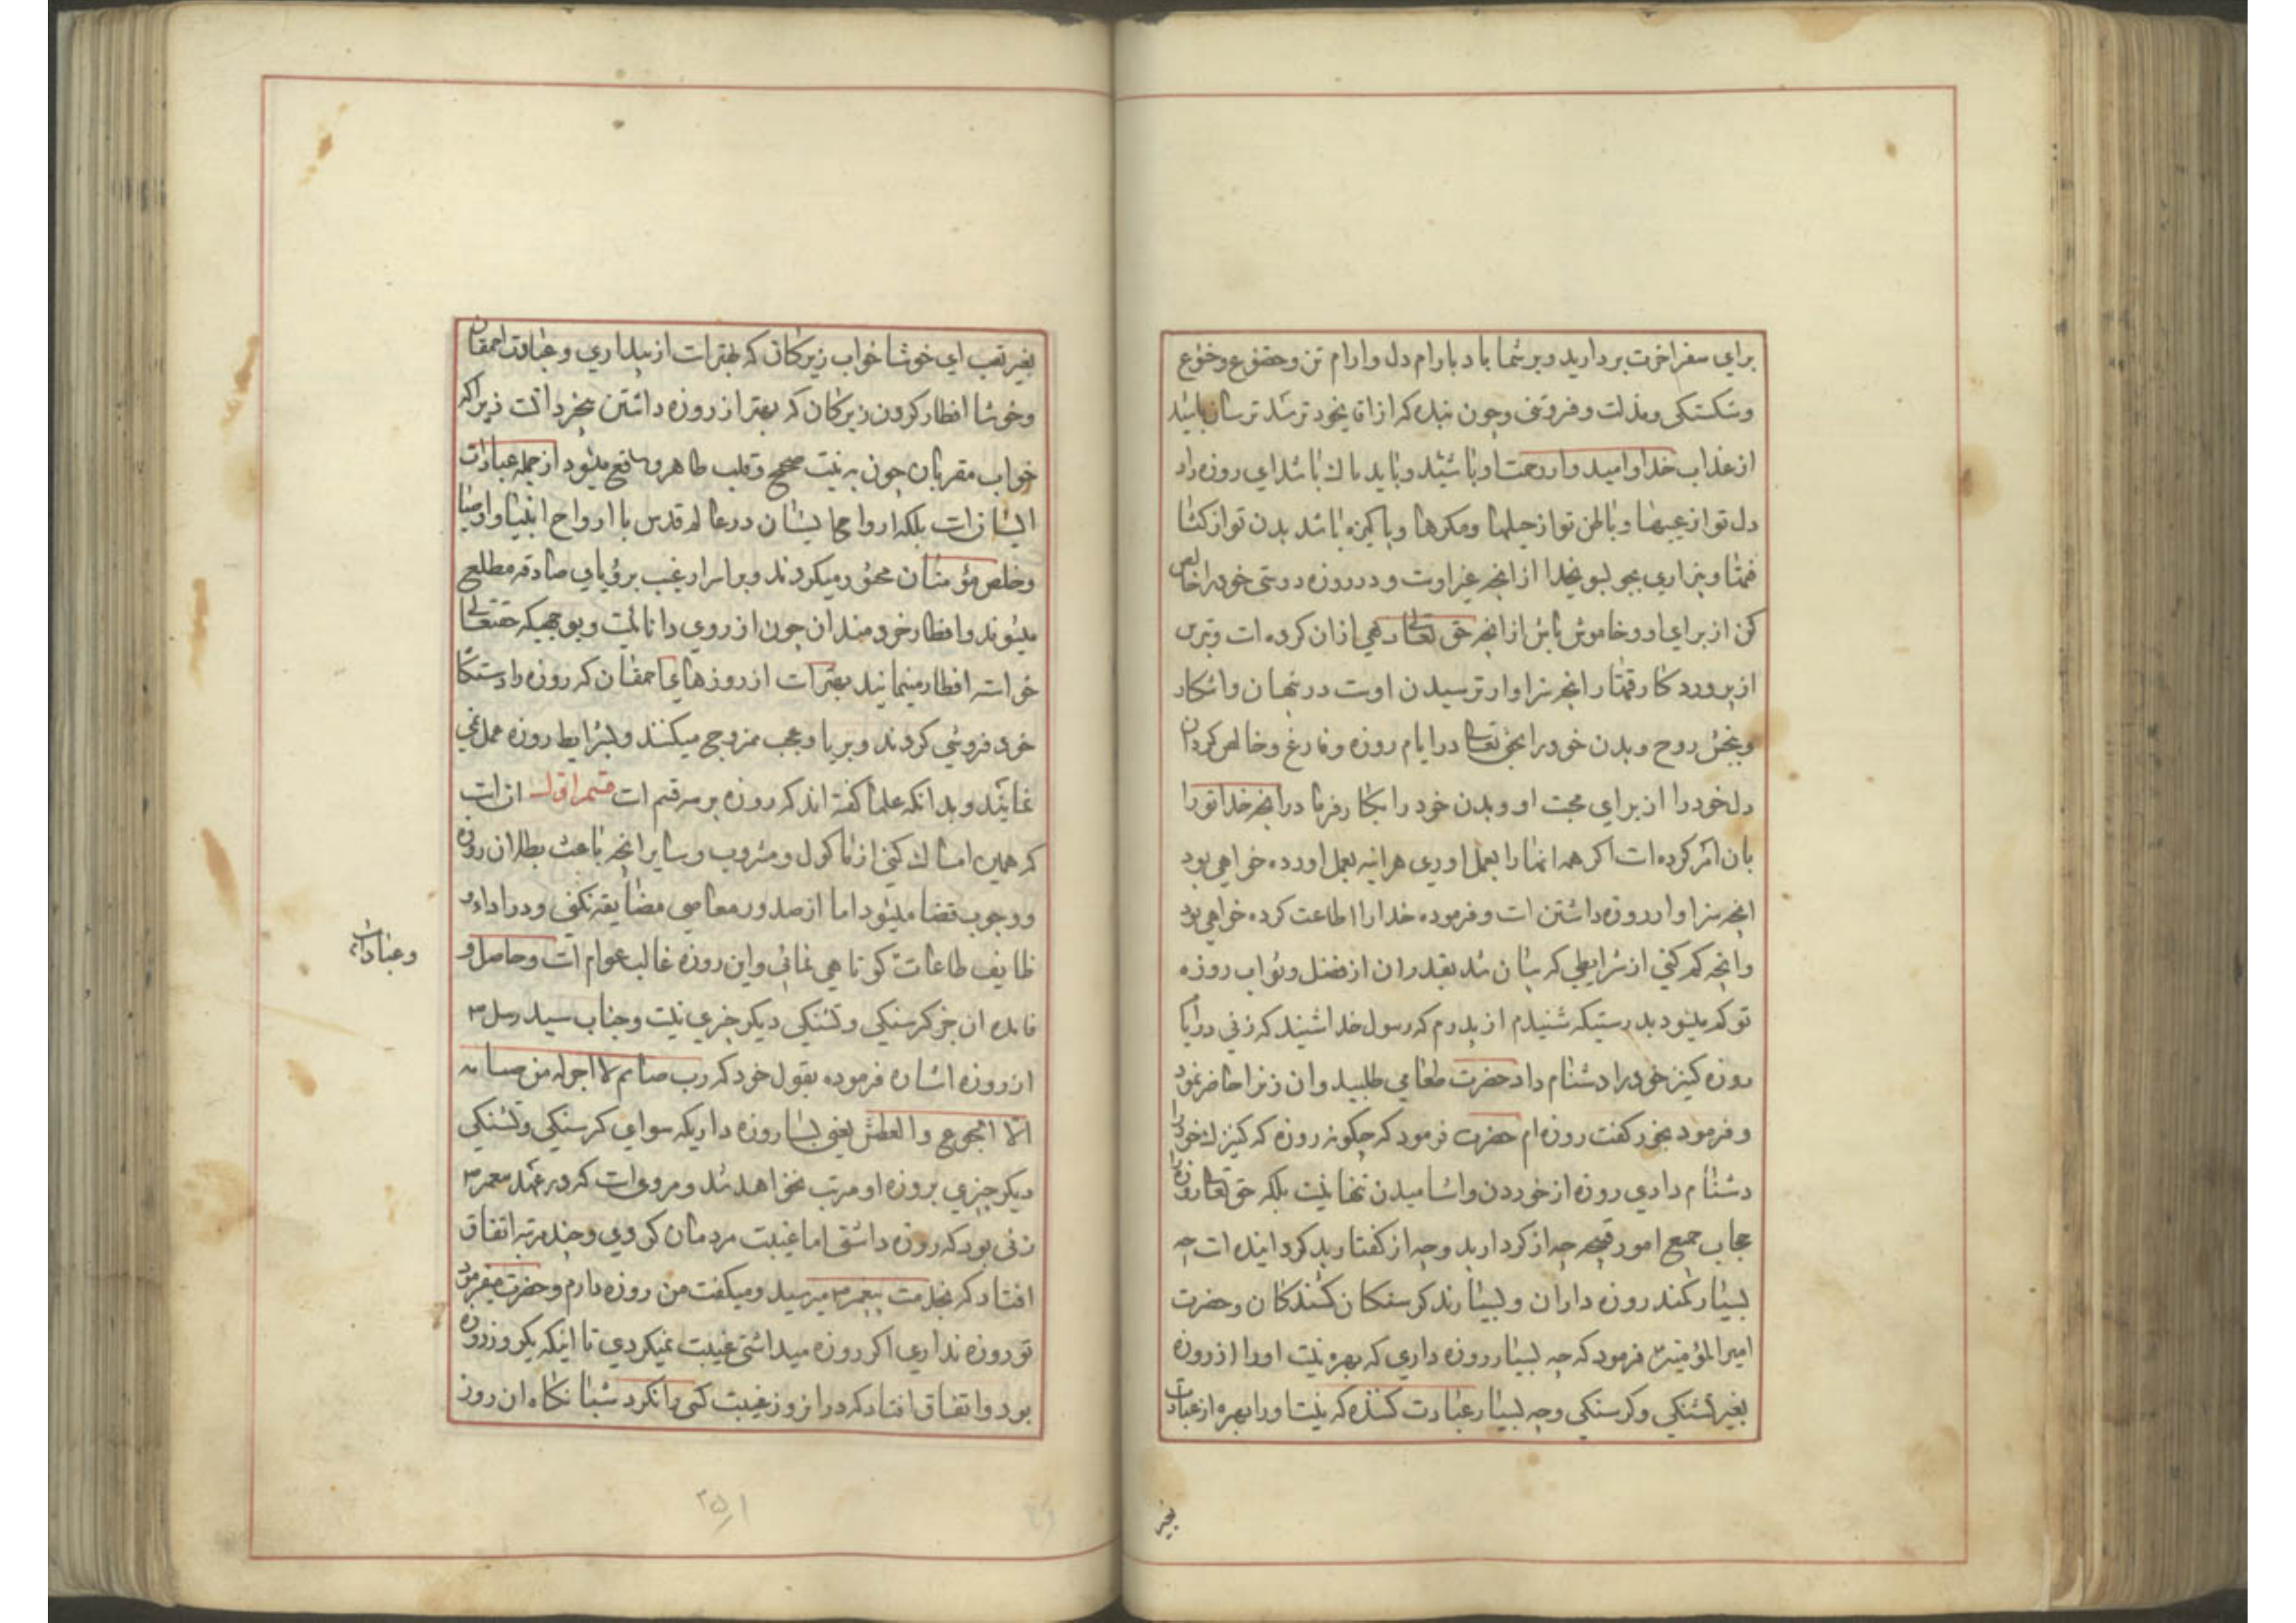 برای سفر اخرت بردارید و بر شما باد بارام دل و ارام تن و خضوع و خشوع
و شکستکی و مذلت و فروتنی و چون بنده که از اقای خود ترسد ترسان باشید
از عذاب خدا و امیدوار رحمت او باشید و باید پاک باشد ای روزه دار
دل تو از عیبها و باطن تو از حیلها و مکرها و پاکیزه باشد بدن تو از کثا
فتها و بیزاری بجو بسوی خدا از انچه غیر اوست و در روزه دوستی خود را خالص
کن از برای او و خاموش باش از انچه حق تعالی نهی از ان کرده است و بترس
از پروردکار قهار انچه سزاوار ترسیدن اوست در پنهان و اشکار
و ببخش روح و بدن خود را بحق تعالی در ایام روزه و فارغ و خالص کردان
دل خود را از برای محبت او و بدن خود را بکار فرما در انچه خدا تو را
بان امر کرده است اکر همه اینها را بعمل اوری هر اینه بعمل اورده خواهی بود
انچه سزاوار روزه داشتن است و فرموده خدا را اطاعت کرده خواهی بود
و انچه کم کنی از شرایطی که بیان شد بقدر ان از فضل و ثواب روزه
تو کم میشود بدرستیکه شنیدم از پدرم که رسول خدا شنید که زنی در ایا
روزه کنیز خود را دشنام داد حضرت طعامی طلبید و ان زن را حاضر نمود
و فرمود بخور کفت روزه ام حضرت فرمود که چکونه روزه که کنیزک خود را
دشنام دادی روزه از خوردن و اشامیدن تنها نیست بلکه حق تعالی روزه را
حجاب جمیع امور قبیحه چه از کردار بد و چه از کفتار بد کردانیده است چه
بسیار کمند روزه داران و بسیارند کرسنکان کشندکان و حضرت
امیر المؤمنین فرمود که چه بسیار روزه داری که بهره نیست او را از روزه
بغیر تشنکی و کرسنکی و چه بسیار عبادت کننده که نیست او را بهره از عبادت
بغیر
بغیر تعب ای خوشا خواب زیرکان که بهتر است از بیداری و عبادت احمقان
و خوشا افطار کردن زیرکان که بهتر از روزه داشتن بیخرد است زیراکه
خواب مقربان چون به نیت صحیح و قلب طاهر واقع میشود از جمله عبادات
ایشان است بلکه ارواحها ایشان در عالم قدس با ارواح انبیا و اوصیا
و خلص مؤمنان محشور میکردند و بر اسرار غیب برؤیای صادقه مطلع
میشوند و افطار خردمندان چون از روی دانائیست و بوجهیکه حقتعالی
خواسته افطار مینمایند بهتر است از روزهای احمقان که روزه را دستکا
خود فروشی کردند و بریا و عجب ممزوج میکنند و بشرایط روزه عمل نمی
نمایند و بدانکه علما کفته اند که روزه بر سه قسم است قسم اول ان است
که همین امساک کنی از ماکول و مشروب و سایر انچه باعث بطلان روزه
و وجوب قضا میشود اما از صدور معاصی مضایقه نکنی و در اداء و
ظایف طاعات کوتاهی نمائی و این روزه غالب عوام است و حاصل و
وعبادات
فایده ان جز کرسنکی و تشنکی دیکر چیزی نیست و جناب سید رسل ص
از روزه اشاره فرموده بقول خود که رب صائم لا اجر له من صیامه
الا الجوع و العطش یعنی بسا روزه داریکه سوای کرسنکی و تشنکی
دیکر چیزی بروزه او مرتب نخواهد شد و مروی است که در عهد پیغمبر ص
زنی بود که روزه داشتی اما غیبت مردمان کردی و چند مرتبه اتفاق
افتاد که بخدمت پیغمبر ص میرسید و میکفت من روزه دارم و حضرت میفرمود
تو روزه نداری اکر روزه میداشتی غیبت نمیکردی تا اینکه یکروز روزه
بود و اتفاق افتاد که در انروز غیبت کسی را نکرد شبانکاه ان روز
۲۵۱